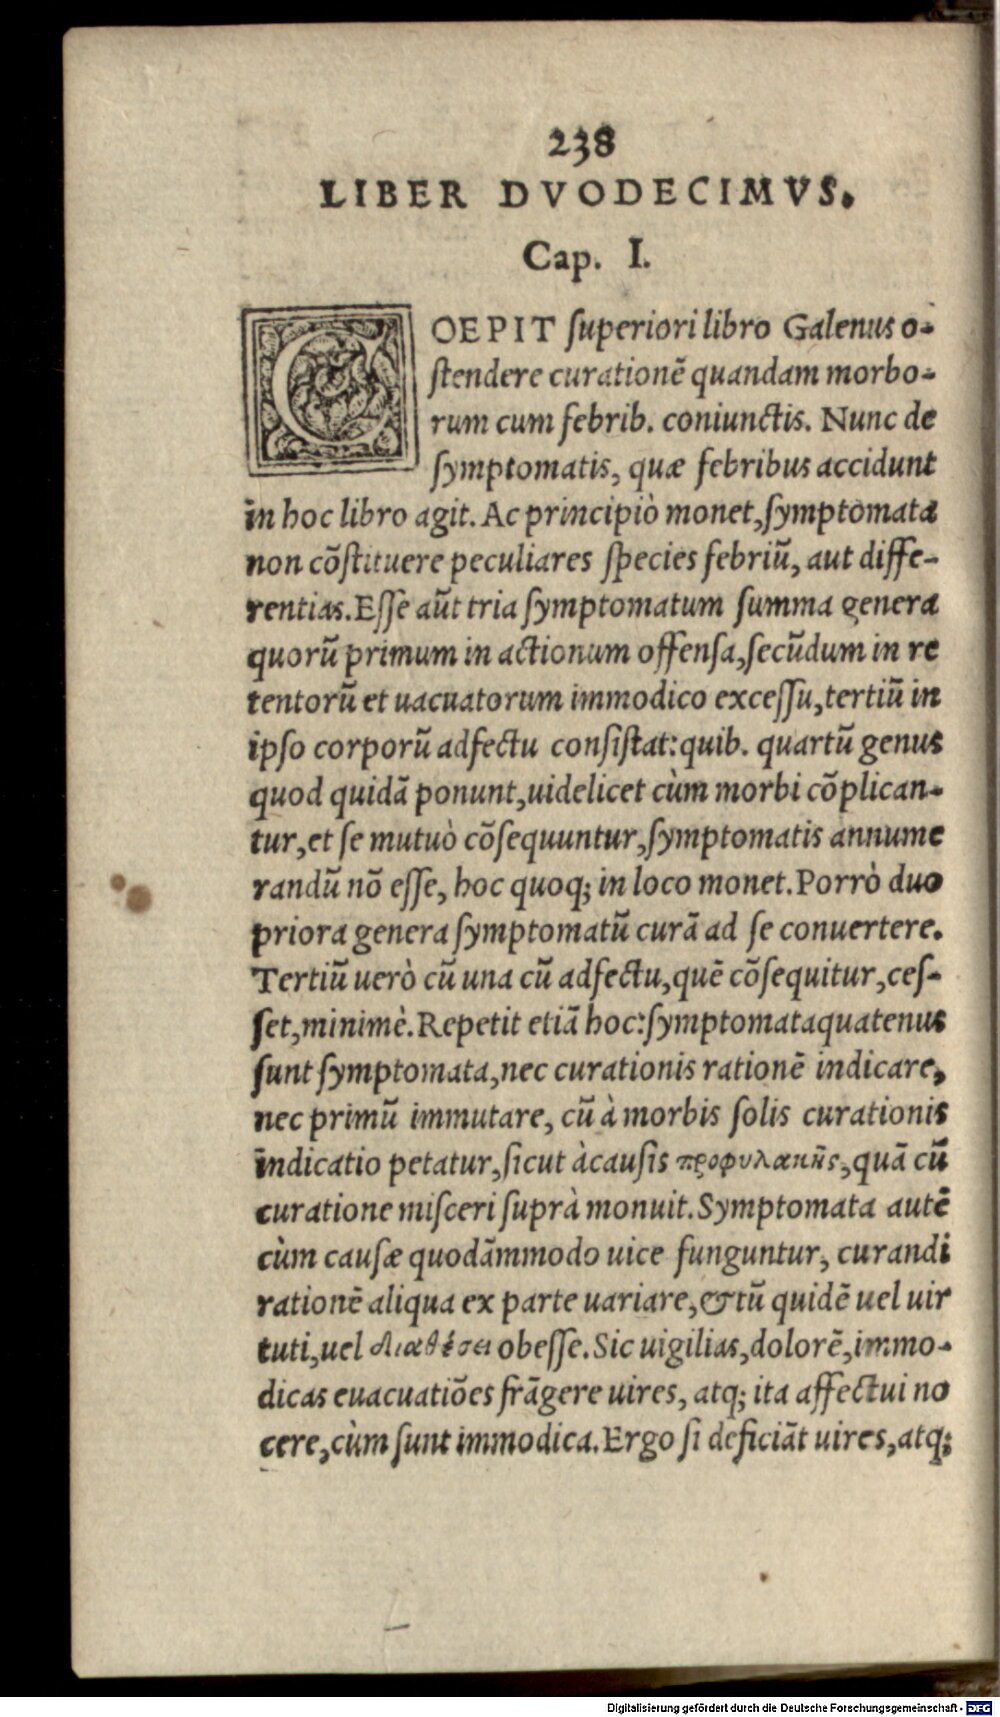 238
LIBER DVODECIMVS.
Cap. I.
COEPIT ſuperiori libro Galenus o-
ſtendere curationẽ quandam morbo-
rum cum febrib. coniunctis. Nunc de
ſymptomatis, quæ febribus accidunt
in hoc libro agit. Ac principiò monet, ſymptomata
non cõſtituere peculiares ſpecies febriũ, aut diffe-
rentias. Eſſe aũt tria ſymptomatum ſumma genera
quorũ primum in actionum offenſa, ſecũdum in re
tentorũ et uacuatorum immodico exceſſu, tertiũ in
ipſo corporũ adfectu conſiſtat: quib. quartũ genus
quod quidã ponunt, uidelicet cùm morbi cõplican-
tur, et ſe mutuò cõſequuntur, ſymptomatis annume
randũ nõ eſſe, hoc quoq; in loco monet. Porrò duo
priora genera ſymptomatũ curã ad ſe conuertere.
Tertiũ uerò cũ una cũ adfectu, quẽ cõſequitur, ceſ-
ſet, minimè. Repetit etiã hoc: ſymptomata quatenus
ſunt ſymptomata, nec curationis rationẽ indicare,
nec primũ immutare, cũ à morbis ſolis curationis
indicatio petatur, ſicut à cauſis προφυλακῆς, quã cũ
curatione miſceri ſuprà monuit. Symptomata autẽ
cùm cauſæ quodãmmodo uice funguntur, curandi
rationẽ aliqua ex parte uariare, & tũ quidẽ uel uir
tuti, uel διαθέσει obeſſe. Sic uigilias, dolorẽ, immo-
dicas euacuatiões frãgere uires, atq; ita affectui no
cere, cùm ſunt immodica. Ergo ſi deficiãt uires, atq;
Digitalisierung gefördert durch die Deutsche Forschungsgemeinschaft - DFG